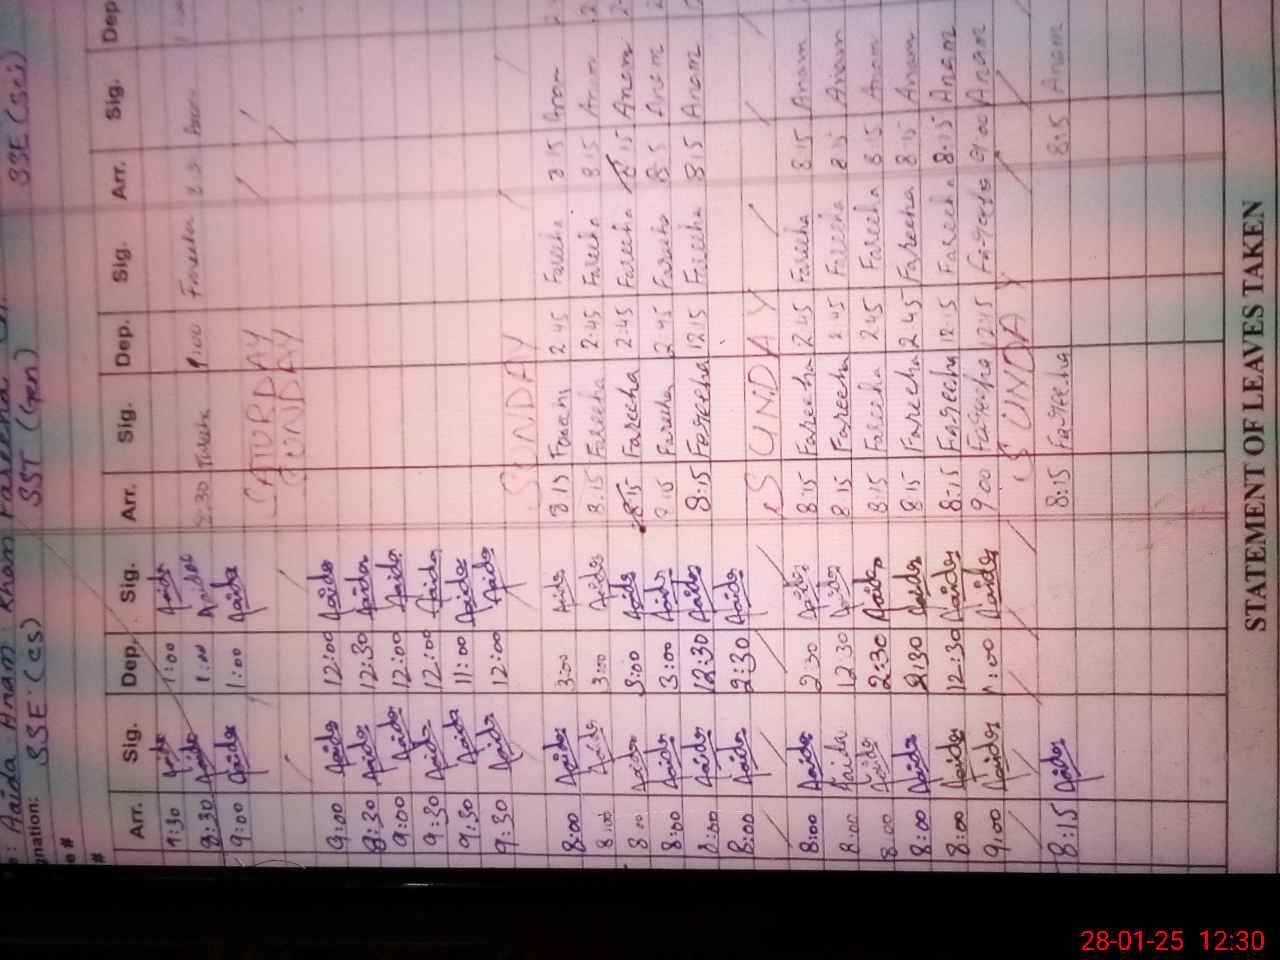 : Aaida Anam Khan Fareeha
gnation: SSE (cs) SST (gen) SSE (sci)
e #
#
Arr. Sig. Dep. Sig. Arr. Sig. Dep. Sig. Arr. Sig. Dep
9:30 Aaida 1:00 Aaida
9:30 Aaida 1:00 Aaida 8:30 Fareeha 1:00 Fareeha
9:00 Aaida 1:00 Aaida
SATURDAY
SUNDAY
9:00 Aaida 12:00 Aaida
8:30 Aaida 12:30 Aaida
9:00 Aaida 12:00 Aaida
9:30 Aaida 12:00 Aaida
9:30 Aaida 11:00 Aaida
9:30 Aaida 12:00 Aaida
SUNDAY
8:00 Aaida 3:00 Aaida 8:15 Fareeha 2:45 Fareeha 8:15 Anam
8:00 Aaida 3:00 Aaida 8:15 Fareeha 2:45 Fareeha 8:15 Anam
8:00 Aaida 3:00 Aaida 8:15 Fareeha 2:45 Fareeha 8:15 Anam
8:00 Aaida 3:00 Aaida 8:15 Fareeha 2:45 Fareeha 8:15 Anam
8:00 Aaida 12:30 Aaida 8:15 Fareeha 12:15 Fareeha 8:15 Anam
8:00 Aaida 2:30 Aaida
SUNDAY
8:00 Aaida 2:30 Aaida 8:15 Fareeha 2:45 Fareeha 8:15 Anam
8:00 Aaida 12:30 Aaida 8:15 Fareeha 2:45 Fareeha 8:15 Anam
8:00 Aaida 2:30 Aaida 8:15 Fareeha 2:45 Fareeha 8:15 Anam
8:00 Aaida 2:30 Aaida 8:15 Fareeha 2:45 Fareeha 8:15 Anam
8:00 Aaida 12:30 Aaida 8:15 Fareeha 12:15 Fareeha 8:15 Anam
9:00 Aaida 1:00 Aaida 9:00 Fareeha 12:45 Fareeha 9:00 Anam
SUNDAY
8:15 Aaida 8:15 Fareeha 8:15 Anam
STATEMENT OF LEAVES TAKEN
28-01-25 12:30